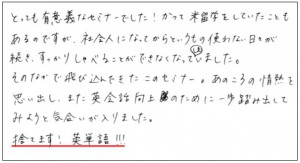 とっても有意義なセミナーでした！かつて米留学をしていたことも
あるのですが、社会人になってからというもの使わない日々が
続き、すっかりしゃべることができなくなっていました。
そのなかで飛び込んできたこのセミナー。あのころの情熱を
思い出し、また英会話向上のために一歩踏み出して
みようと気合いが入りました。
捨てます！英単語!!!